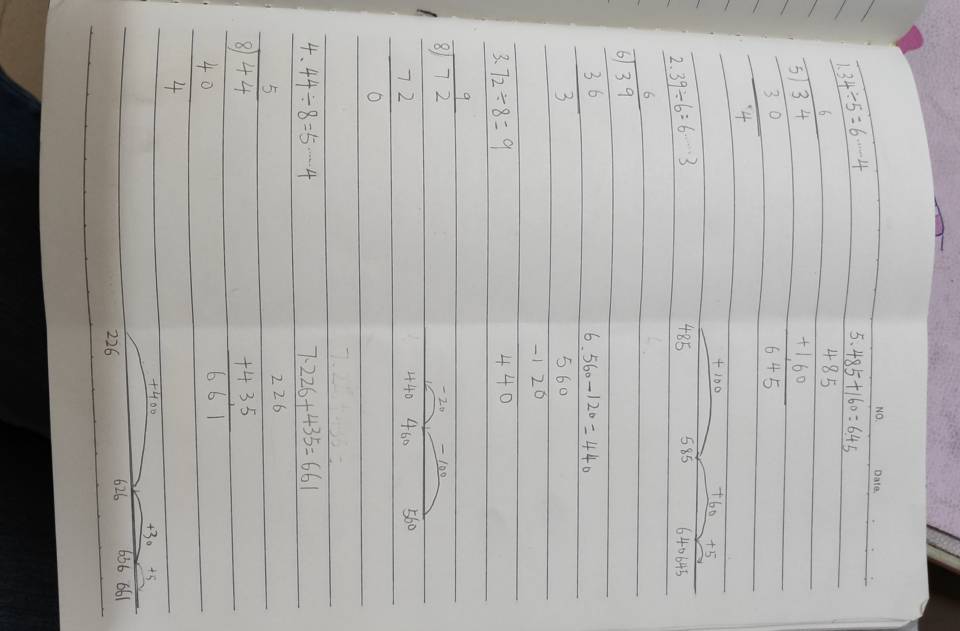 NO.
Date
1.34÷5=6……4
6
5)34
30
4
2.39÷6=6……3
6
6)39
36
3
3.72÷8=9
9
8)72
72
0
4.44÷8=5……4
5
8)44
40
4
5.485+160=645
485
+160
645
+100 +60 +5
485 585 640 645
6.560-120=440
560
-120
440
-20 -100
440 460 560
7.226+435=661
226
+435
661
+400 +30 +5
226 626 656 661